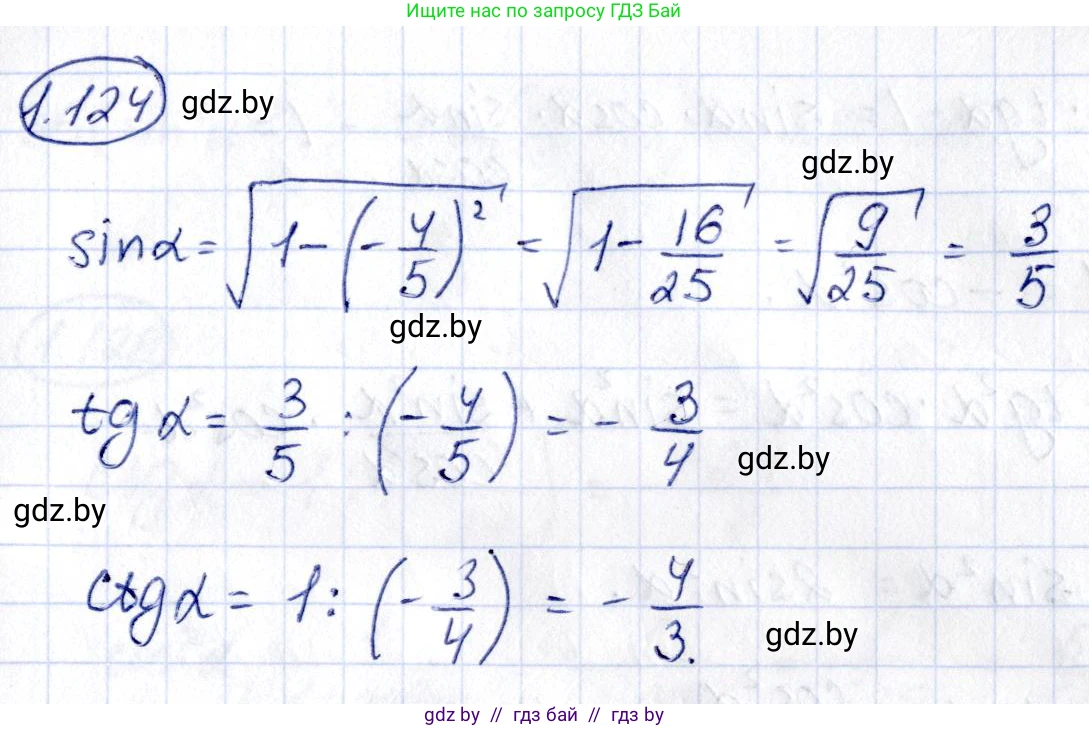 Ищите нас по запросу ГДЗ Бай
1.124 gdz.by
gdz.by
sinα = √(1 - (-4/5)²) = √(1 - 16/25) = √(9/25) = 3/5
gdz.by
tg α = 3/5 : (-4/5) = - 3/4
gdz.by
gdz.by
ctg α = 1 : (-3/4) = - 4/3.
gdz.by
gdz by // гдз бай // гдз by